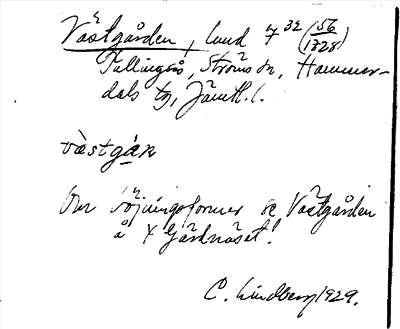 Västgården, lund 7 32 (56/1728)
Tullingsås, Ströms sn, Hammer-
dals tg, Jämtl. l.
västgárn
Om böjningsformer se Västgården
å 4 Gärdnäset!
C. Lindberg 1929.